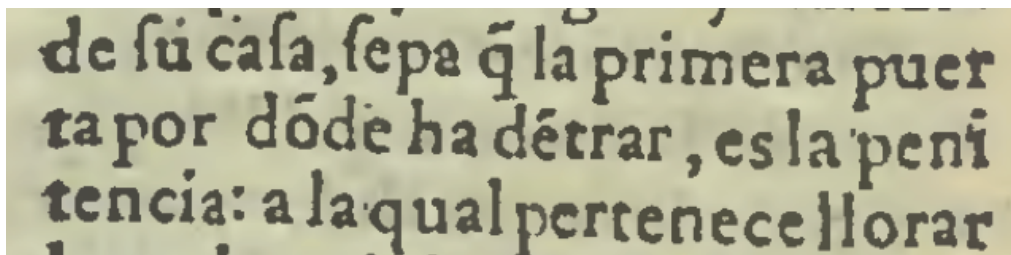 de ſu caſa, ſepa q̃ la primera puer
ta por dõde ha détrar, es la peni
tencia: a la qual pertenece llorar